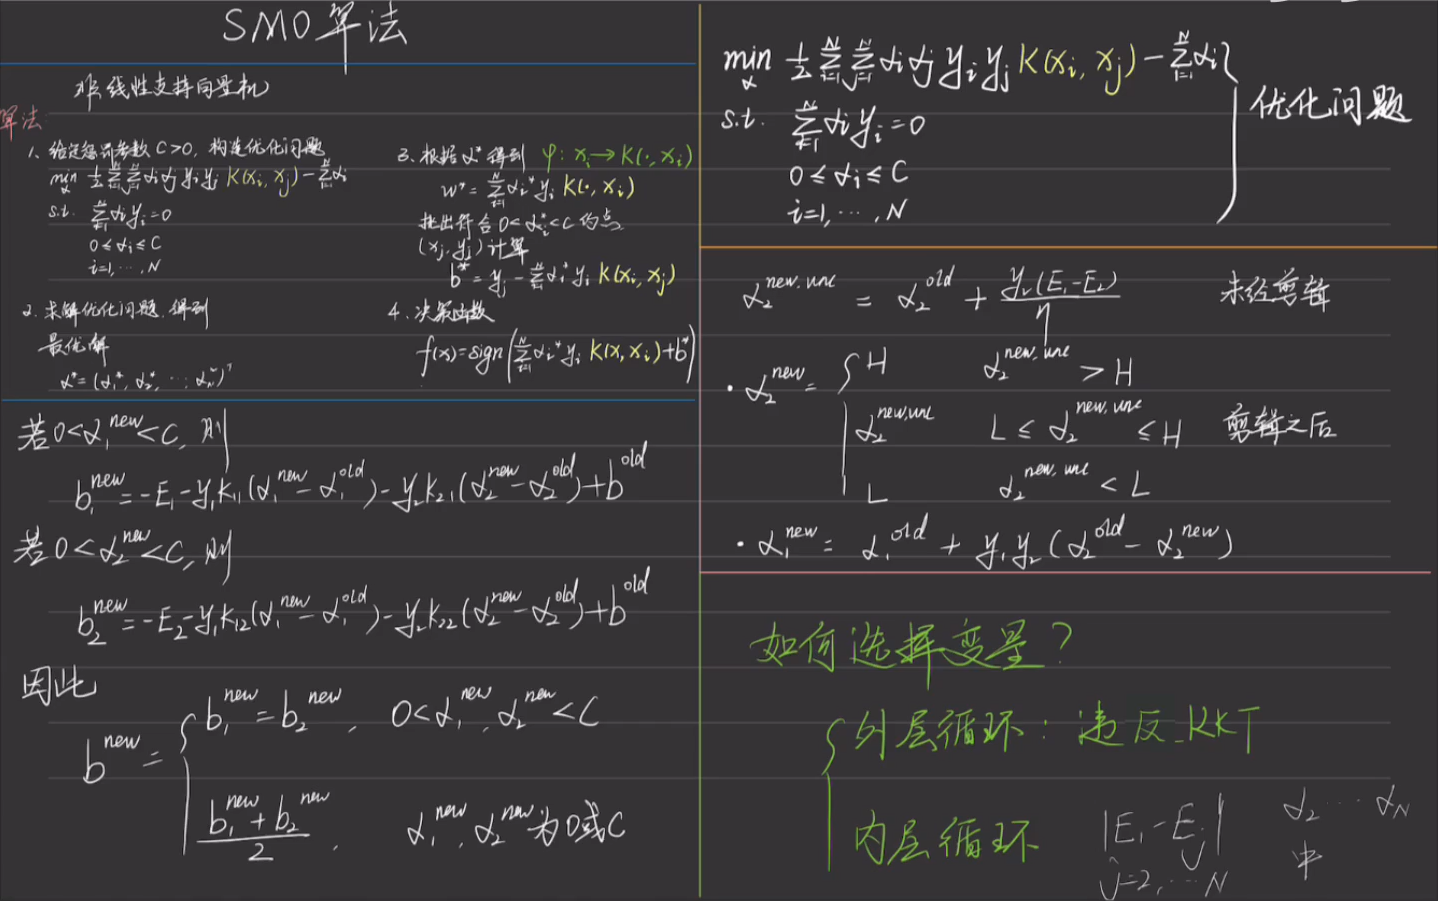 SMO算法
非线性支持向量机
算法
1、给定惩罚参数 C>0, 构造优化问题
min_α ½ Σ_{i=1}^N Σ_{j=1}^N αi αj yi yj K(xi, xj) − Σ_{i=1}^N αi
s.t. Σ_{i=1}^N αi yi = 0
0 ≤ αi ≤ C
i=1, ⋯, N
2、求解优化问题, 得到
最优解
α* = (α1*, α2*, ⋯, αN*)^T
3、根据 α* 得到 φ: xi → K(·, xi)
w* = Σ_{i=1}^N αi* yi K(·, xi)
找出符合 0<αi*<C 的点
(xj, yj) 计算
b* = yj − Σ_{i=1}^N αi* yi K(xi, xj)
4、决策函数
f(x) = sign(Σ_{i=1}^N αi* yi K(x, xi) + b*)
若 0<α1^new<C, 则
b1^new = −E1 − y1 k11 (α1^new − α1^old) − y2 k21 (α2^new − α2^old) + b^old
若 0<α2^new<C, 则
b2^new = −E2 − y1 k12 (α1^new − α1^old) − y2 k22 (α2^new − α2^old) + b^old
因此
b^new = { b1^new = b2^new, 0<α1^new, α2^new<C
(b1^new + b2^new)/2, α1^new, α2^new 为 0或C
min_α ½ Σ_{i=1}^N Σ_{j=1}^N αi αj yi yj K(xi, xj) − Σ_{i=1}^N αi
s.t. Σ_{i=1}^N αi yi = 0
0 ≤ αi ≤ C
i=1, ⋯, N
优化问题
α2^{new,unc} = α2^old + y2(E1−E2)/η 未经剪辑
· α2^new = { H α2^{new,unc} > H
α2^{new,unc} L ≤ α2^{new,unc} ≤ H 剪辑之后
L α2^{new,unc} < L
· α1^new = α1^old + y1 y2 (α2^old − α2^new)
如何选择变量?
{ 外层循环: 违反 KKT
内层循环 |E1 − Ej| α2 ⋯ αN
j=2, ⋯ N 中